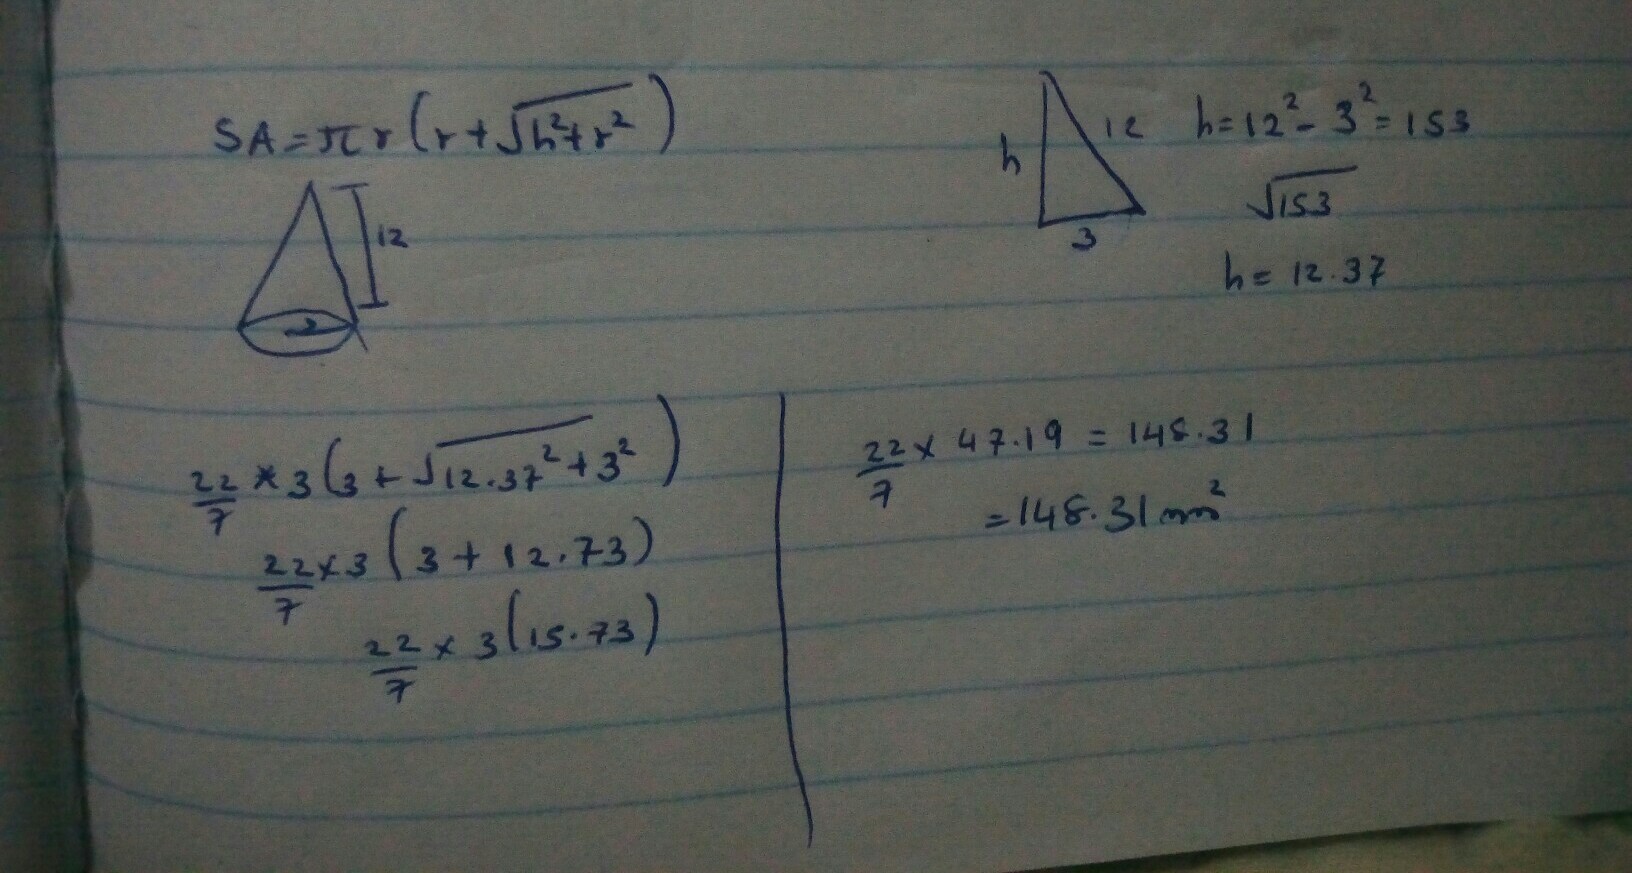 SA = πr(r + √h²+r²)
12
h
12
3
h = 12² - 3² = 153
√153
h = 12.37
22/7 × 3(3 + √12.37² + 3²)
22/7 × 3(3 + 12.73)
22/7 × 3(15.73)
22/7 × 47.19 = 148.31
= 148.31 mm²